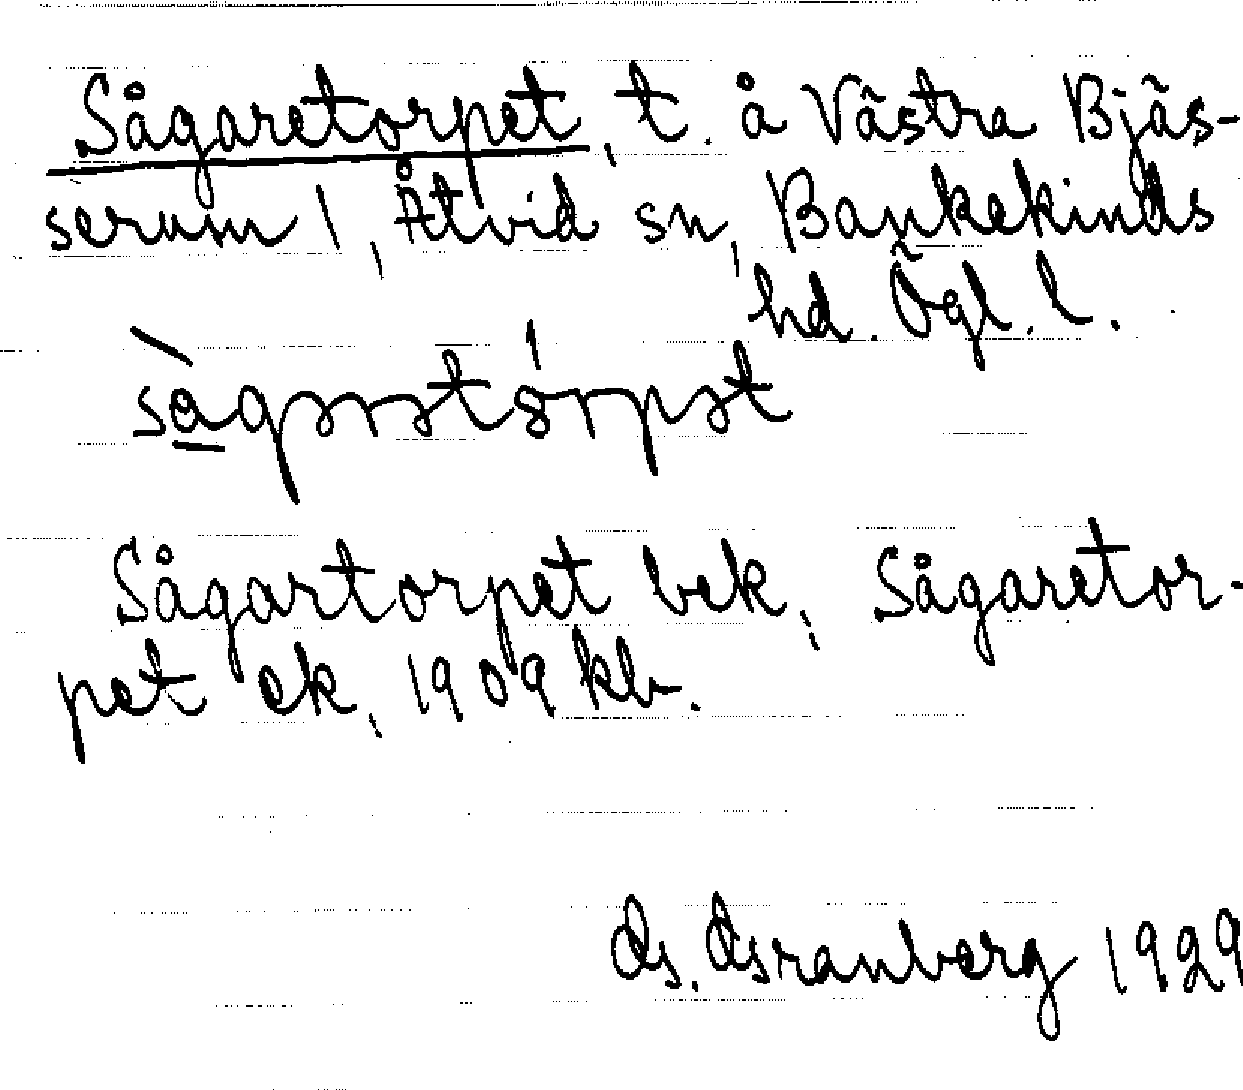 Sågaretorpet, t. å Västra Bjäs-
serum 1, Åtvid sn, Bankekinds
hd. Ögl. l.
Sågartorpet bek., Sågaretor-
pet ek., 1909 kb.
G. Granberg 1929